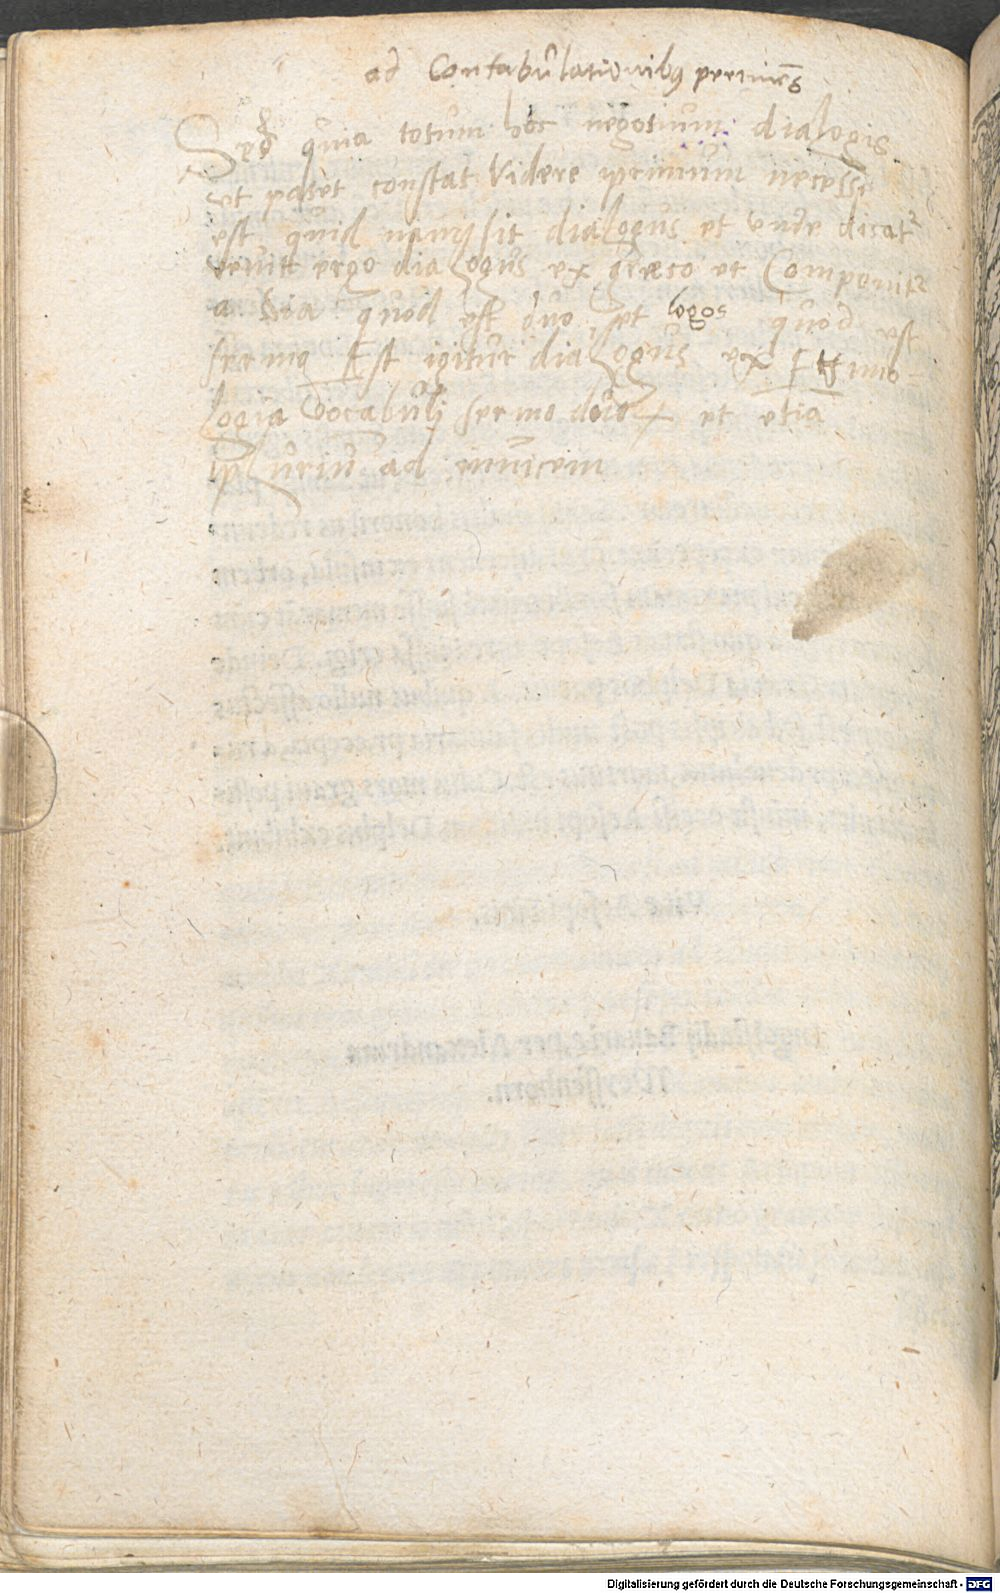 ad Confabulationibus
Sed quia totum hoc negotium dialogis
ut patet constat Videre primum necesse
est quid nam sit dialogus et unde dicat
venit ergo dialogus ex graeco et Componit
a Dia quod est duo et logos quod est
sermo Est igitur dialogus ex Ettimo
logia vocabuli sermo duorum et etiā
pluriū ad invicem
Digitalisierung gefördert durch die Deutsche Forschungsgemeinschaft - DFG